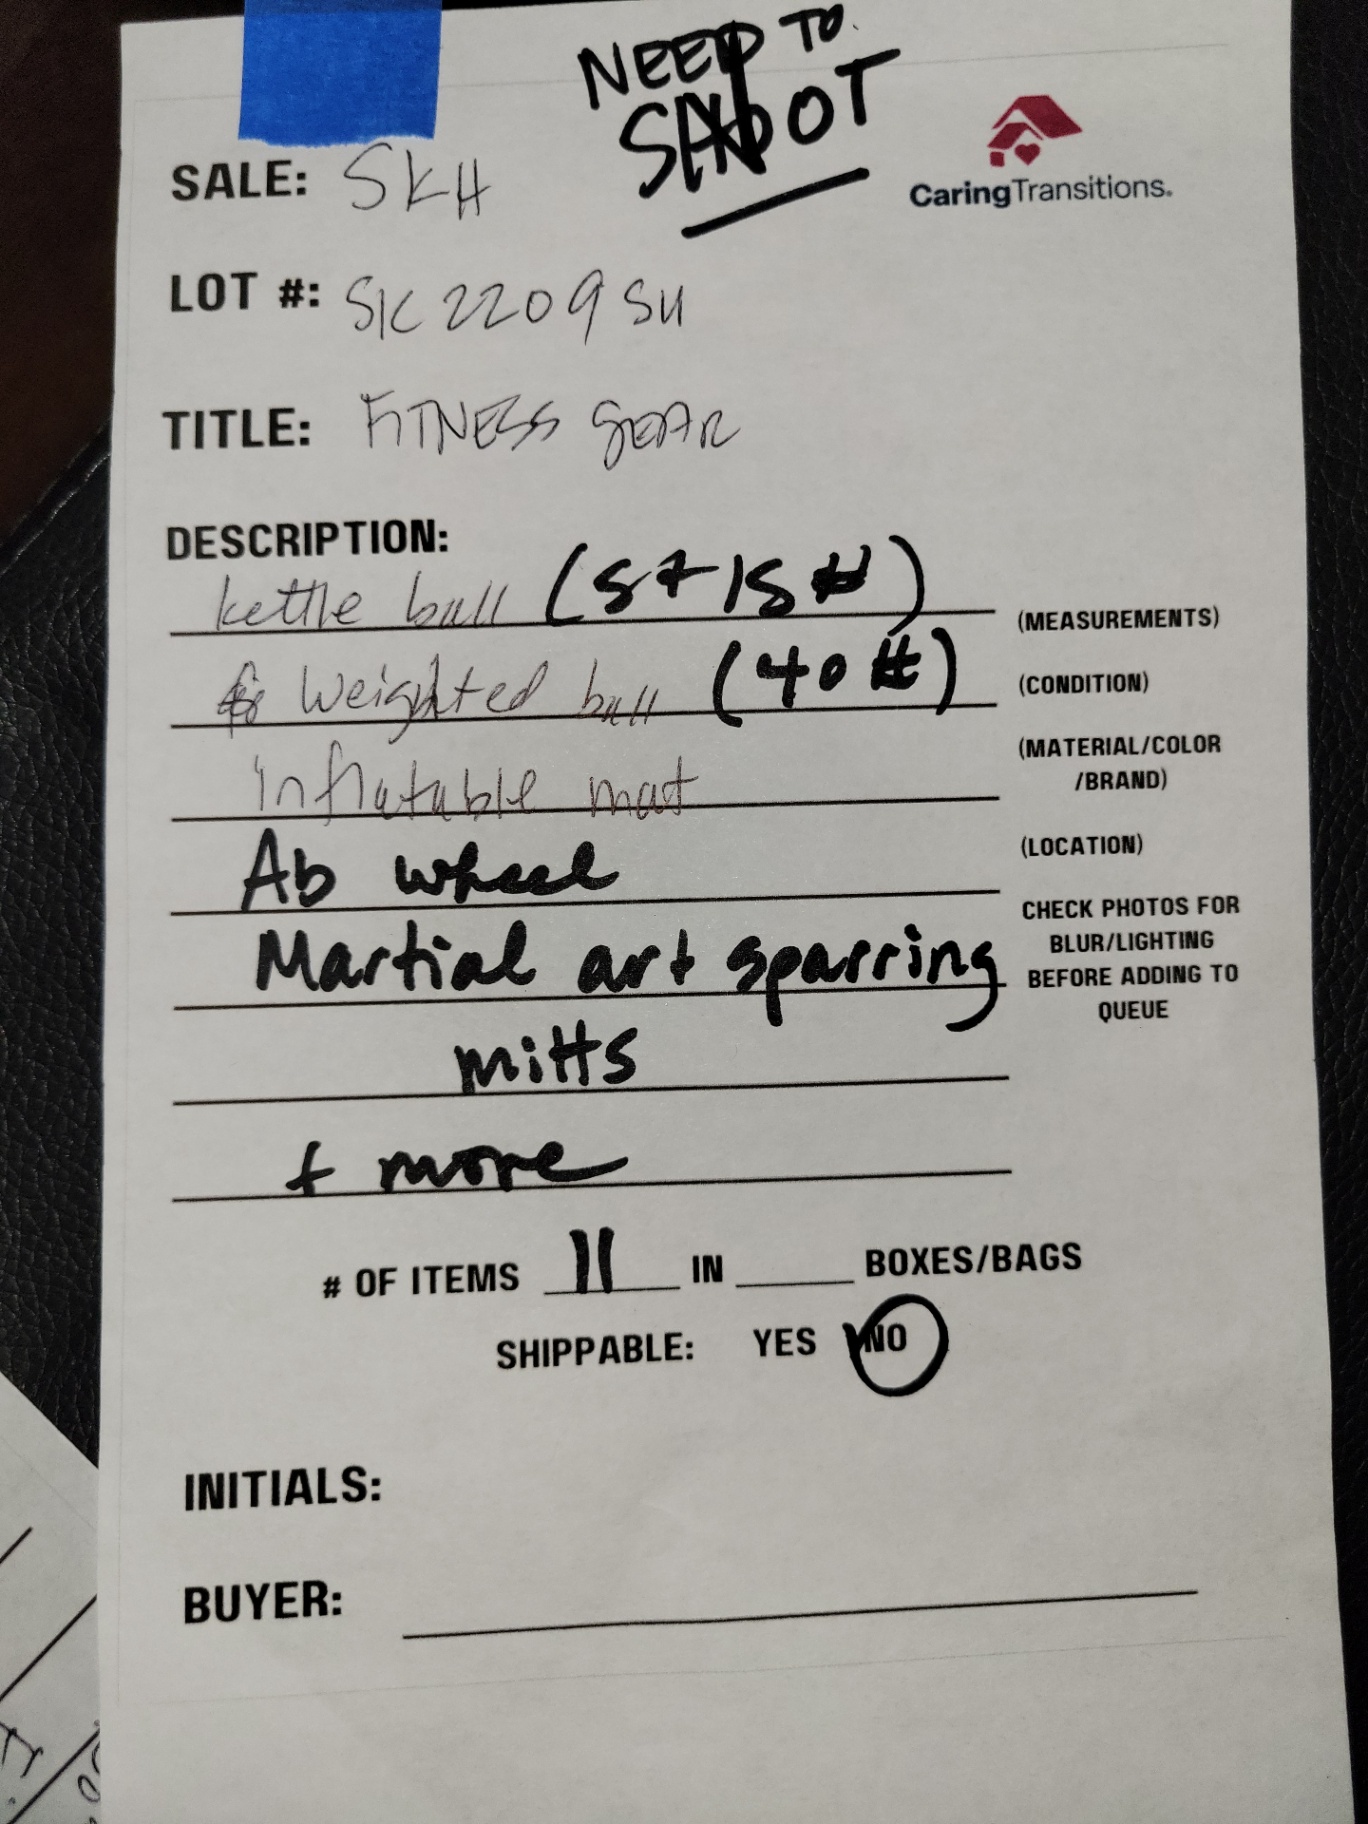 NEED TO
SHOOT
CaringTransitions.
SALE: SKH
LOT #: SK2209SH
TITLE: FITNESS GEAR
DESCRIPTION:
kettle ball (5 + 15 #)
(MEASUREMENTS)
Weighted ball (40 #)
(CONDITION)
inflatable mat
(MATERIAL/COLOR
/BRAND)
Ab wheel
(LOCATION)
Martial art sparring
mitts
+ more
CHECK PHOTOS FOR
BLUR/LIGHTING
BEFORE ADDING TO
QUEUE
# OF ITEMS 11 IN BOXES/BAGS
SHIPPABLE: YES NO
INITIALS:
BUYER: